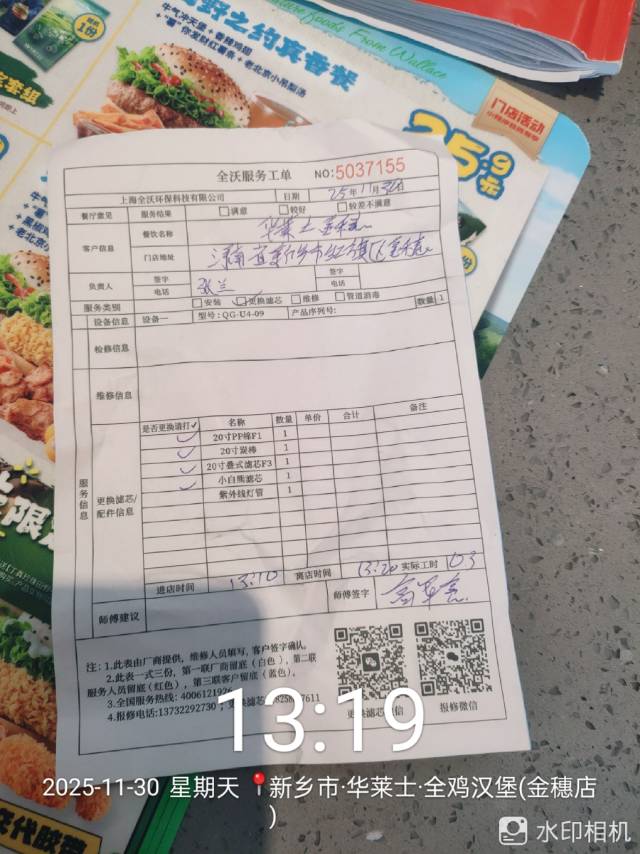 野之约真香餐
牛气冲天堡 + 香辣鸡翅
+“薯”你发财红薯条 + 老北京小吊梨汤
门店活动
25.9元
全沃服务工单 NO:5037155
上海全沃环保科技有限公司 日期 25年11月30日
餐厅意见 服务结果 □满意 □较好 □较差不满意
客户信息 餐饮名称 华莱士金穗
门店地址 河南省新乡市红旗区金穗
负责人 签字 张兰 签字
电话 电话
服务类别 □安装 ☑更换滤芯 □维修 □管道消毒 数量 1
设备信息 设备一 型号:QG-U4-09 产品序列号:
检修信息
维修信息
服务信息
更换滤芯/配件信息
是否更换请打✓ 名称 数量 单价 合计 备注
✓ 20寸PP棉F1 1
✓ 20寸炭棒 1
✓ 20寸叠式滤芯F3 1
✓ 小白熊滤芯 1
紫外线灯管 1
进店时间 13:10 离店时间 13:20 实际工时
师傅建议 师傅签字
注:1.此表由厂商提供,维修人员填写,客户签字确认。
2.此表一式三份,第一联厂商留底(白色),第二联
服务人员留底(红色),第三联客户留底(蓝色)。
3.全国服务热线:400612192
4.报修电话:13732292730 ;更换滤芯
更换滤芯微信 报修微信
13:19
2025-11-30 星期天 新乡市·华莱士·全鸡汉堡(金穗店
)
水印相机